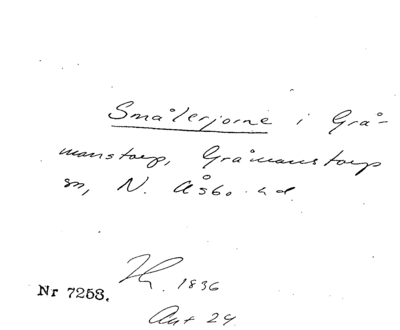 Smålerjorne i Grå-
manstorp, Gråmanstorp
sn, N. Åsbo hd.
Th. 1836
Nr 7253.
Ant 24